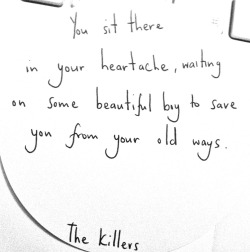 You sit there
in your heartache, waiting
on some beautiful boy to save
you from your old ways.
The Killers